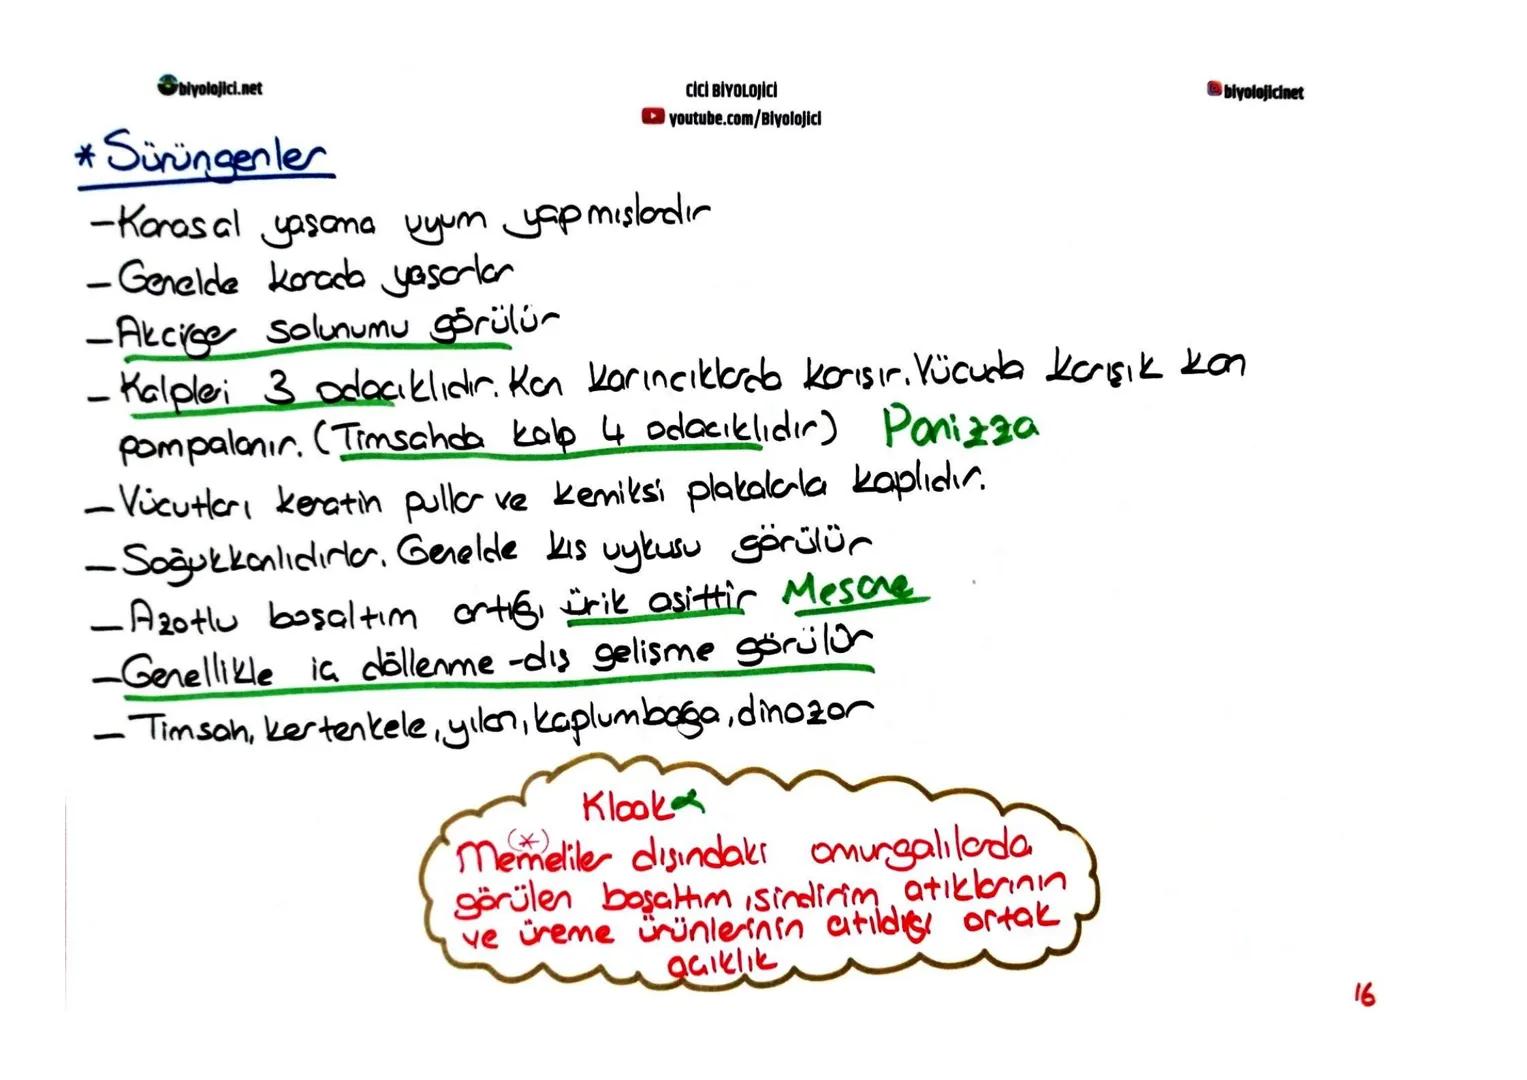 biyolojici.net
CİCİ BİYOLOJİCİ
youtube.com/Biyolojici
biyolojicinet
* Sürüngenler
- Karasal yaşama uyum yapmışlardır
- Genelde karada yaşarlar
- Akciğer solunumu görülür
- Kalpleri 3 odacıklıdır. Kan karıncıklarda karışır. Vücuda karışık kan
pompalanır. (Timsahda kalp 4 odacıklıdır) Panizza
- Vücutları keratin pullar ve kemiksi plakalarla kaplıdır.
- Soğukkanlıdırlar. Genelde kış uykusu görülür
- Azotlu boşaltım artığı ürik asittir Mesane
- Genellikle iç döllenme - dış gelişme görülür
- Timsah, kertenkele, yılan, kaplumbağa, dinozor
Kloak
(*)
Memeliler dışındaki omurgalılarda
görülen boşaltım, sindirim atıklarının
ve üreme ürünlerinin atıldığı ortak
açıklık
16